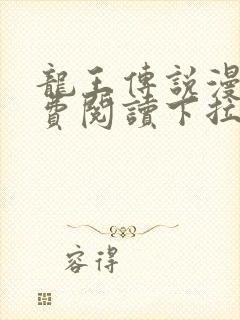 龍王傳說漫
費閱讀下拉
容得